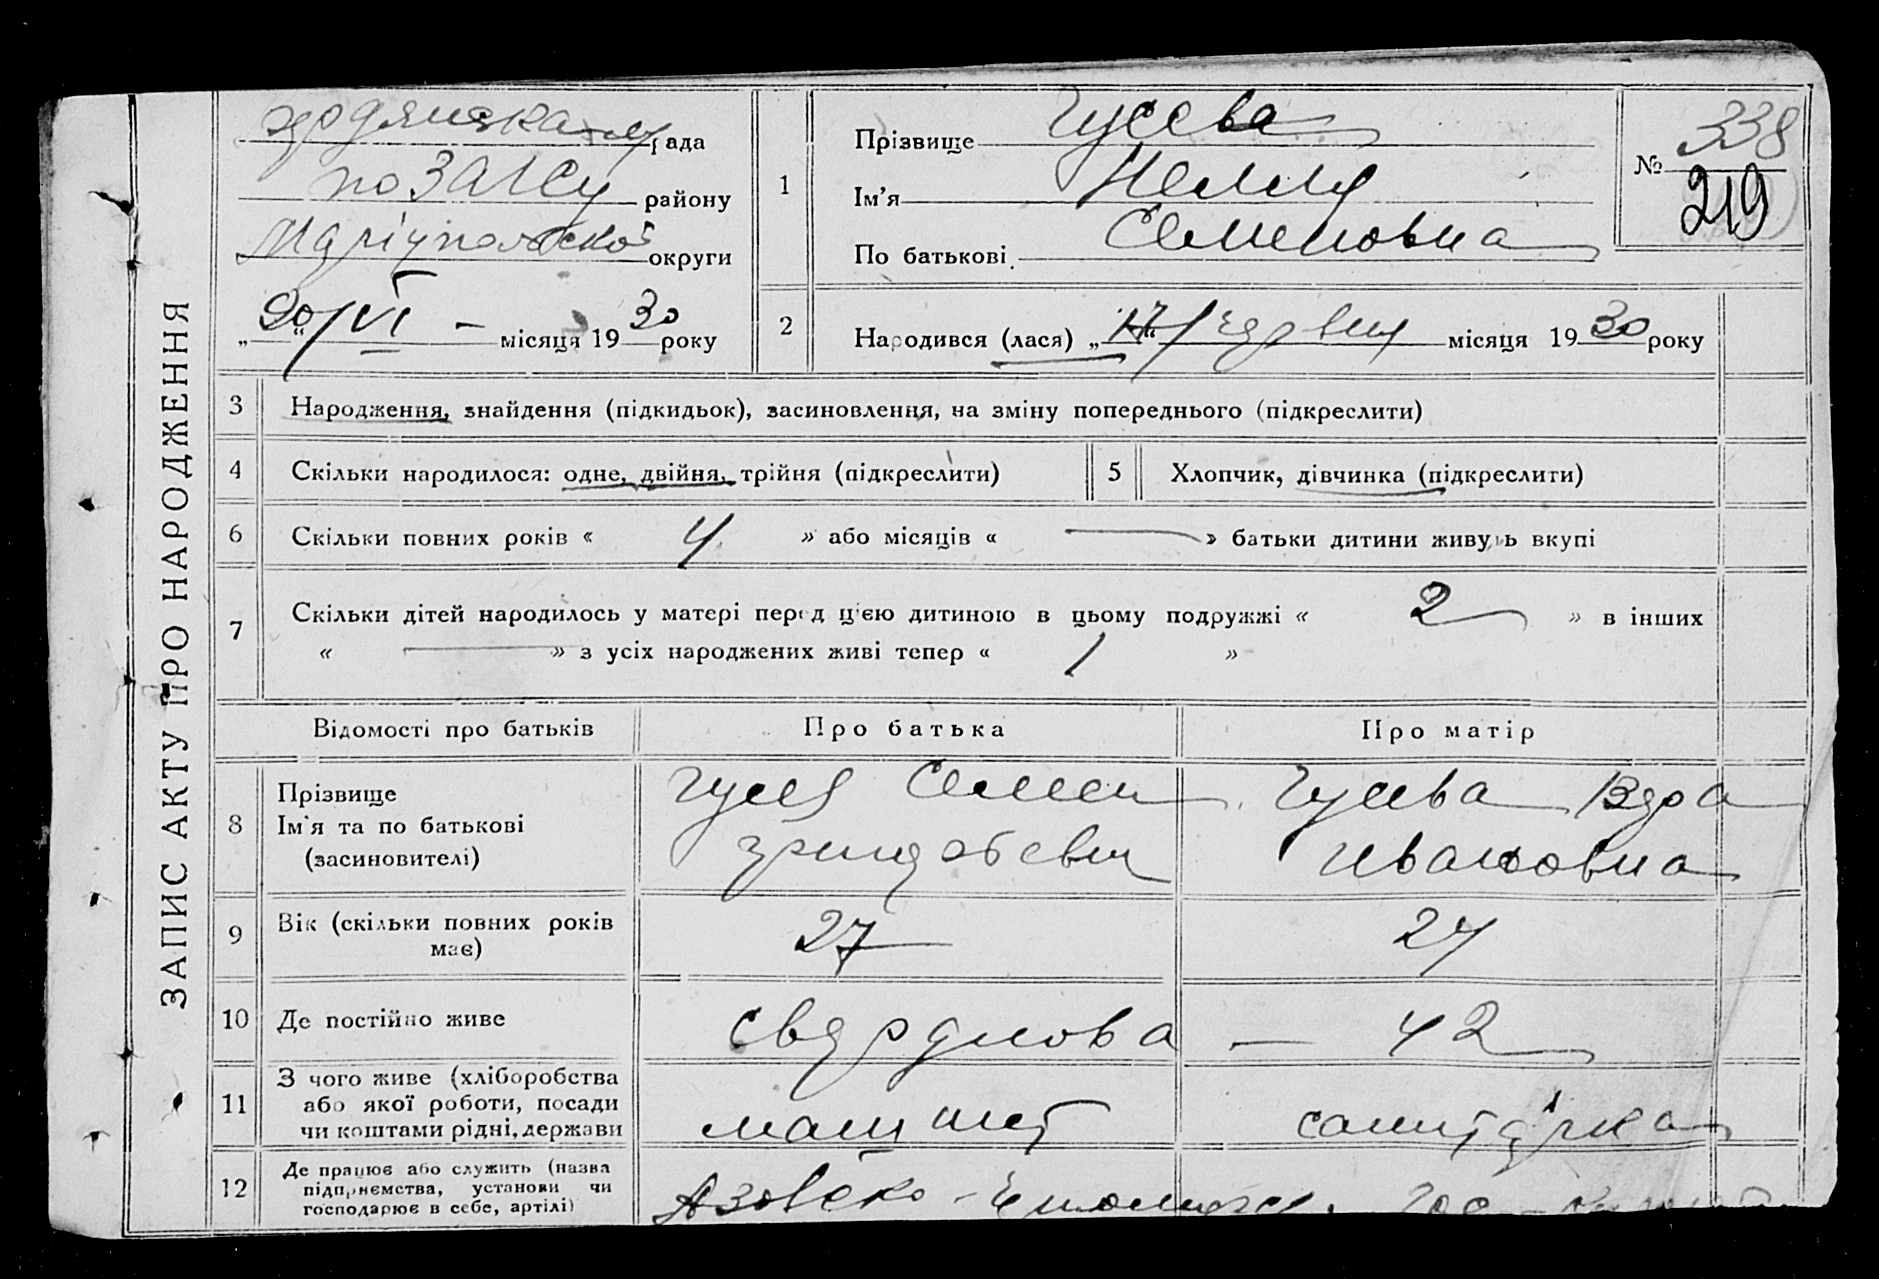 ЗАПИС АКТУ ПРО НАРОДЖЕННЯ
рада
по ЗАГСу району
Маріупольської округи
„20/VI — місяця 1930 року
1
Прізвище Гусева
Ім’я Нелля
По батькові Семеновна
№ 338
219
2
Народився (лася) „17“ червня місяця 1930 року
3
Народження, знайдення (підкидьок), засиновлення, на зміну попереднього (підкреслити)
4
Скільки народилося: одне, двійня, трійня (підкреслити)
5
Хлопчик, дівчинка (підкреслити)
6
Скільки повних років « 4 » або місяців « — » батьки дитини живуть вкупі
7
Скільки дітей народилось у матері перед цією дитиною в цьому подружжі « 2 » в інших
« — » з усіх народжених живі тепер « 1 »
Відомості про батьків
Про батька
Про матір
8
Прізвище
Ім’я та по батькові
(засиновителі)
Гусев Семен
Гусева Вера
Ивановна
9
Вік (скільки повних років
має)
27
24
10
Де постійно живе
Свердлова — 42
11
З чого живе (хліборобства
або якої роботи, посади
чи коштами рідні, держави
машинист
санитарка
12
Де працює або служить (назва
підприємства, установи чи
господарює в себе, артілі)
Азовско-